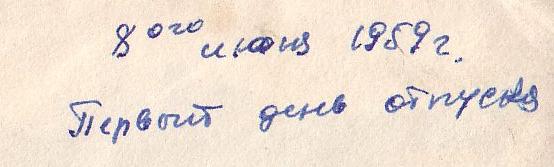 8ого июня 1959г.
Первый день отпуска